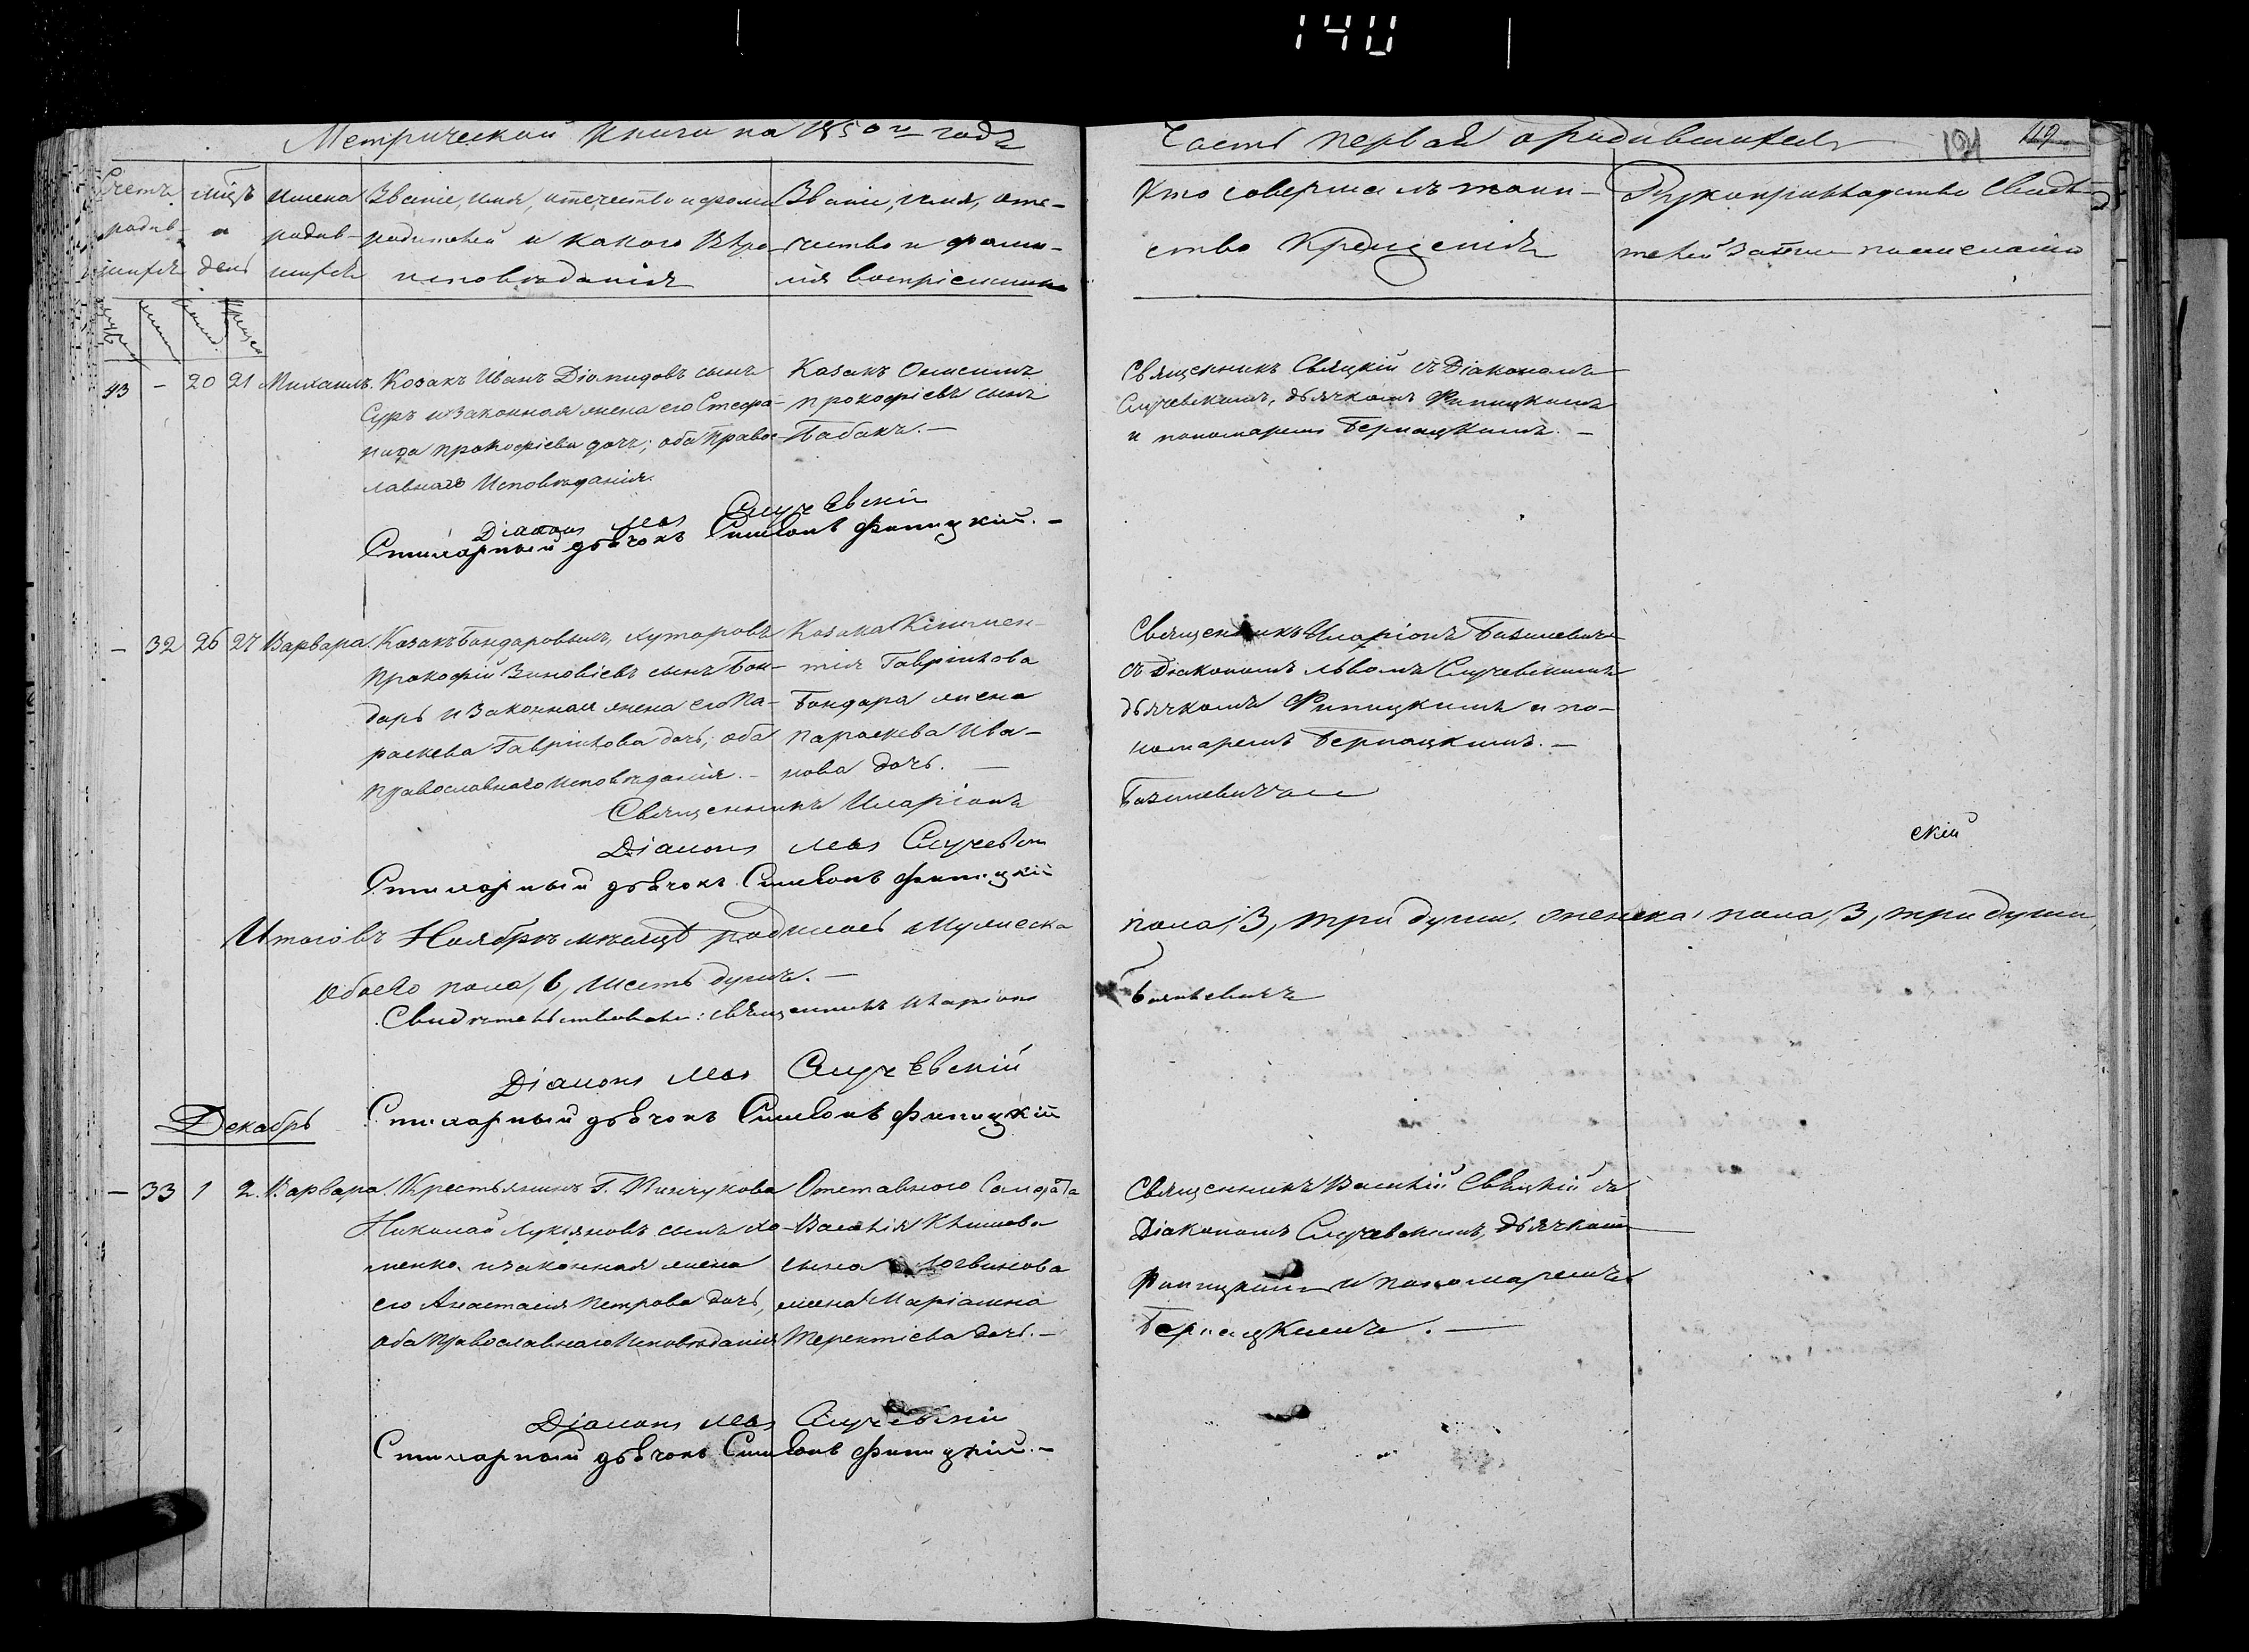 140
Метрической Книги на 1850й годъ
Часть первая о родившихся
121
112
Счетъ родив- шихся
мцъ и день
имена родив- шихся
Званіе, имя, отечество и фами родителей и какого Вѣро исповѣданія
Званіе, имя, оте- чество и фами- лія воспріемник
Кто совершалъ таин- ство Крещенія
Рукоприкладство Свидѣ телей записи по желанію
43 – 20 21 Михаилъ.
Козакъ Иванъ Діомидовъ сынъ
Суръ и законная жена его Стефа-
нида прокофіева дочь; оба право-
лавнаго Исповѣданія.
Казакъ Онисимъ
прокофіевъ сынъ
Бабакъ. –
Священникъ Свяцкій съ Діакономъ
Случевскимъ, дьячкомъ Филицкимъ
и пономаремъ Бернацкимъ. –
Діаконъ Левъ Случевскій
Стихарный дьячокъ Симеонъ Филицкій. –
– 32 26 27 Варвара.
Казакъ Бондаровскихъ, хуторовъ
Прокофій Зиновіевъ сынъ Бон-
дарь и законная жена его Па-
раскева Гавріилова дочь; оба
православнаго исповѣданія. –
Казака Климен-
тія Гавріилова
Бондара жена
параскева Ива-
нова дочь. –
Священникъ Иларіонъ Базилевичъ
съ Діакономъ львомъ Случевскимъ
дьячкомъ Филицкимъ и по-
номаремъ Бернацкимъ. –
Священникъ Иларіонъ Базилевичъ
Діаконъ Левъ Случев скій
Стихарный дьячокъ Симеонъ Филицкій
Итого въ Ноябрѣ мѣсяцѣ родилось мужеска пола, 3, три души, женска пола, 3, три души,
Обоего пола, 6, шесть душъ. –
Свидѣтельствовали: священникъ Иларіонъ Базилевичъ
Діаконъ Левъ Случевскій
Стихарный дьячокъ Симеонъ Филицкій
Декабрь
– 33 1 2. Варвара.
Крестьянинъ Г.
Николай Лукіяновъ сынъ Хо-
менко и законная жена
его Анастасія Петрова дочь,
оба Православнаго Исповѣданія
Отставного Солдата
Василія Климова
сына Логвинова
жена Маріамна
Терентіева дочь. –
Священникъ Василій Свяцкій съ
Діакономъ Случевскимъ, дьячкомъ
Филицкимъ и пономаремъ
Бернацкимъ. –
Діаконъ Левъ Случевскій
Стихарный дьячокъ Симеонъ Филицкій. –